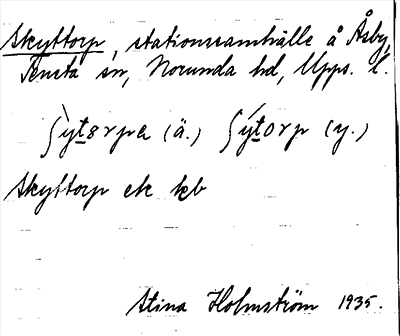 Skyttorp, stationssamhälle å Åsby,
Tensta sn, Norunda hd, Upps. l.
ʃỳt̲ɵrpa (ä.) ʃýt̲orp (y.)
Skyttorp ek kb
Stina Holmström 1935.